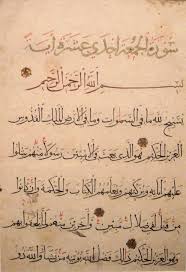 سورة الجمعة احدى عشرة آية
بسم الله الرحمن الرحيم
يسبح لله ما في السموات وما في الارض الملك القدوس
العزيز الحكيم هو الذي بعث في الاميين رسولا منهم يتلوا
عليهم آياته ويزكيهم ويعلمهم الكتاب والحكمة وان كانوا
من قبل لفي ضلال مبين وآخرين منهم لما يلحقوا بهم
وهو العزيز الحكيم ذلك فضل الله يؤتيه من يشاء والله ذو